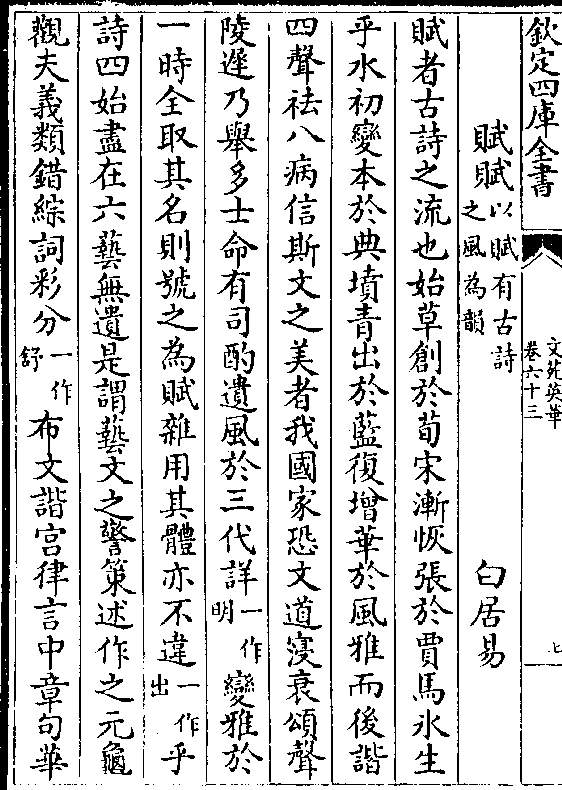 欽定四庫全書
文苑英華
卷六十三
七
賦賦以賦有古詩之風為韻 白居易
賦者古詩之流也始草創於荀宋漸恢張於賈馬氷生
乎水初變本於典墳青出於藍復增華於風雅而後諧
四聲祛八病信斯文之美者我國家恐文道寖衰頌聲
陵遲乃舉多士命有司酌遺風於三代詳一作明變雅於
一時全取其名則號之為賦雜用其體亦不違一作出乎
詩四始盡在六藝無遺是謂藝文之警策述作之元龜
觀夫義類錯綜詞彩分一作舒布文諧宮律言中章句華